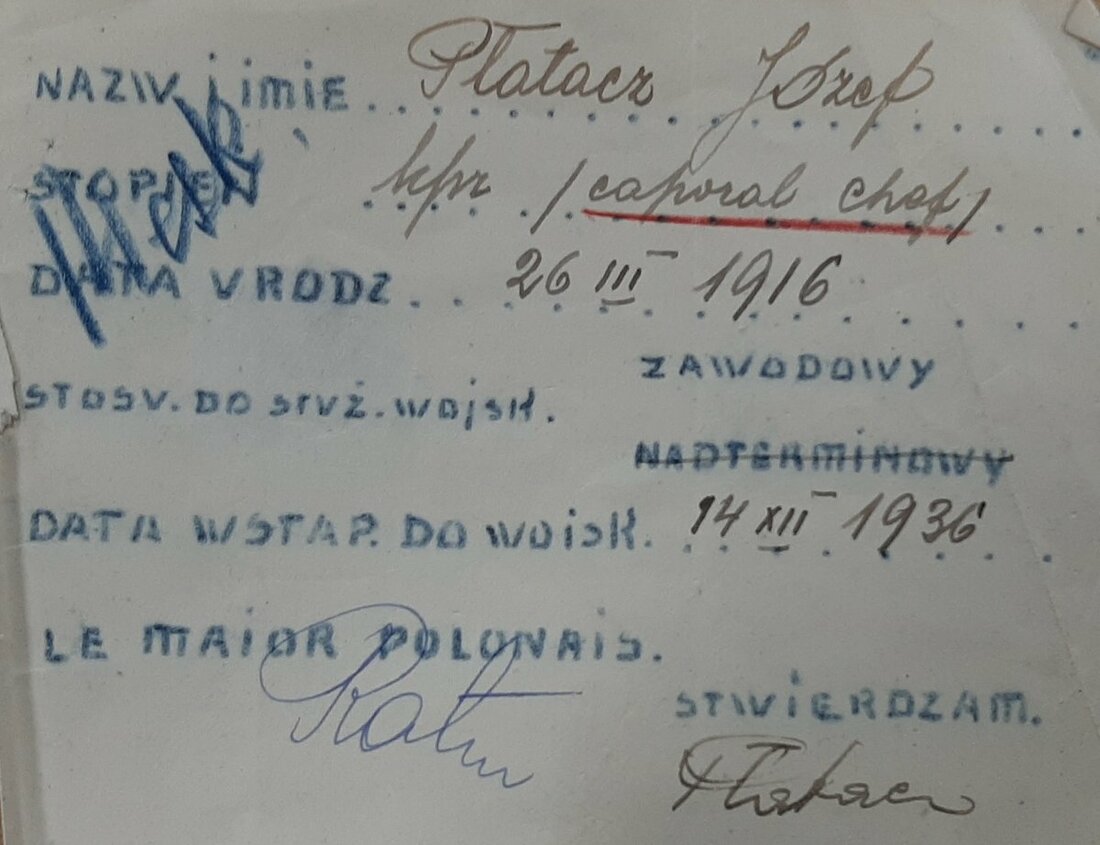 NAZW. i IMIE. Płatacz Józef
STOPIEŃ kpr /caporal chef/
DATA URODZ. 26 III 1916
ZAWODOWY
STOSU. DO SŁUŻ. WOJSK.
NADTERMINOWY
DATA WSTAP. DO WOJSK. 14 XII 1936
LE MAJOR POLONAIS.
STWIERDZAM.
Płatacz